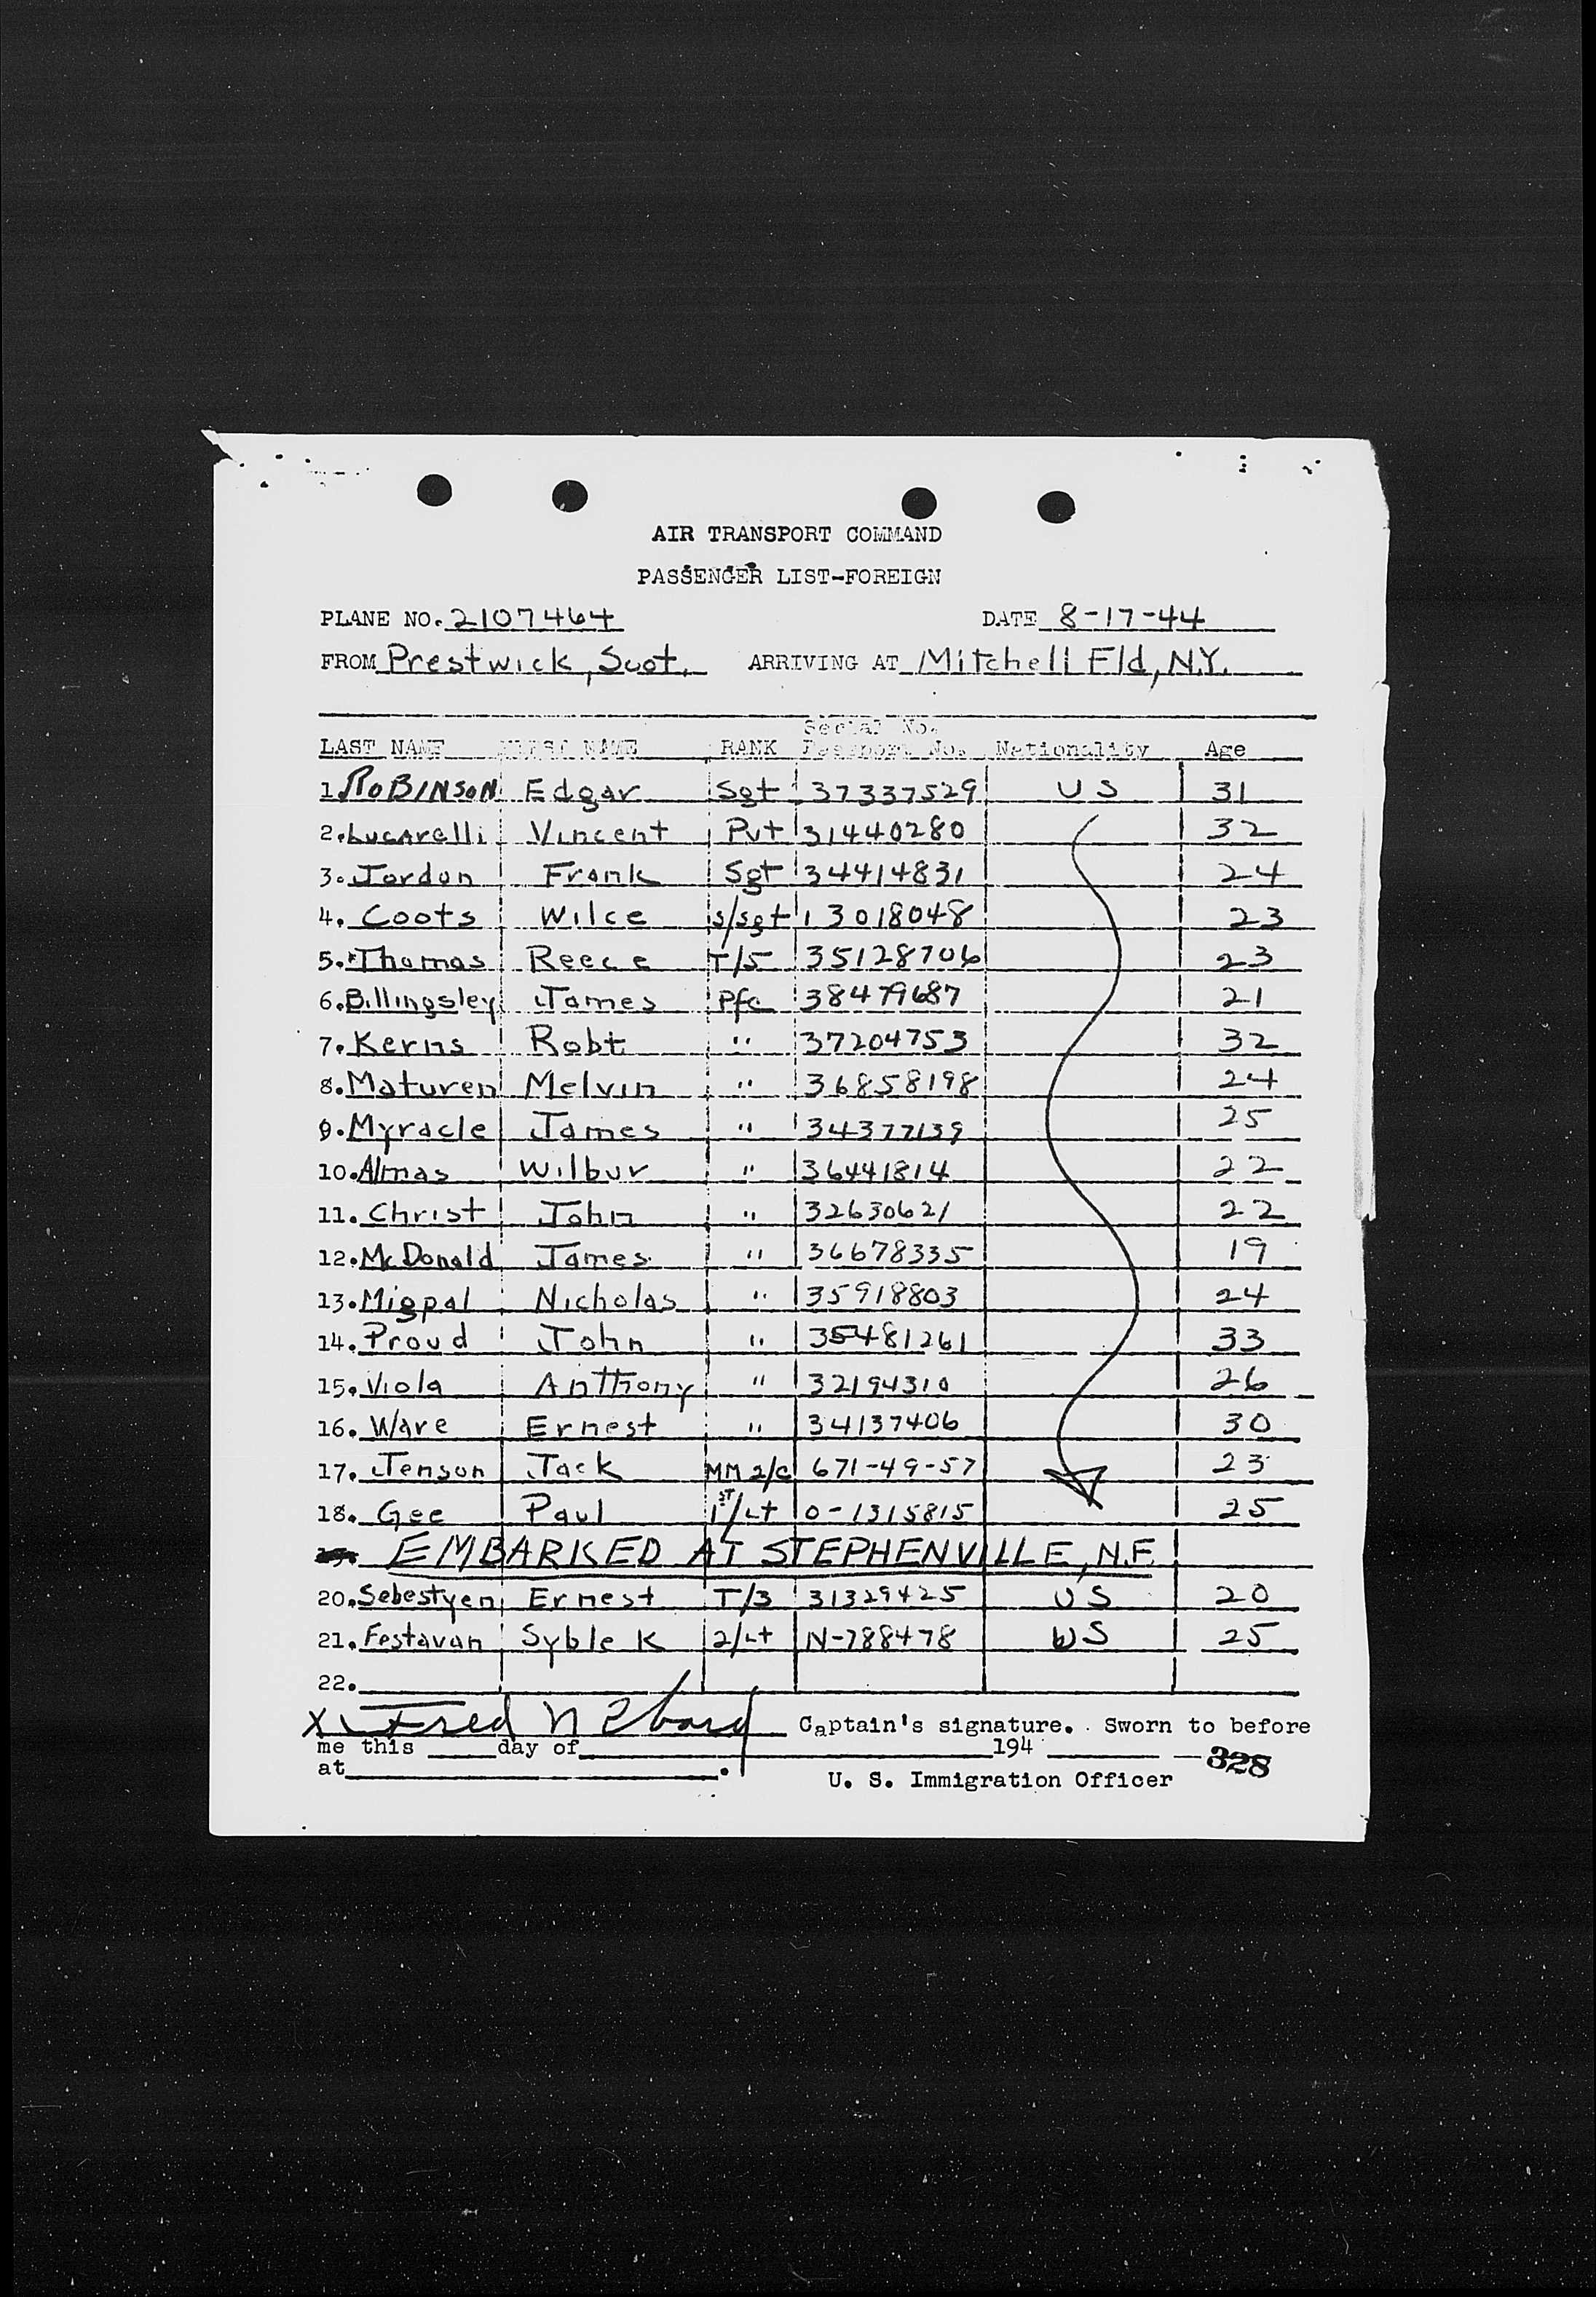 AIR TRANSPORT COMMAND
PASSENGER LIST-FOREIGN
PLANE NO. 2107464 DATE 8-17-44
FROM Prestwick, Scot. ARRIVING AT Mitchell Fld, N.Y.
Serial No.
LAST NAME FIRST NAME RANK Passport No. Nationality Age
1. ROBINSON Edgar Sgt 37337529 US 31
2. Lucarelli Vincent Pvt 31440280 32
3. Jordan Frank Sgt 34414831 24
4. Coots Wilce S/Sgt 13018048 23
5. Thomas Reece T/5 35128706 23
6. Billingsley James Pfc 38479687 21
7. Kerns Robt " 37204753 32
8. Maturen Melvin " 36858198 24
9. Myracle James " 34377139 25
10. Almas Wilbur " 36441814 22
11. Christ John " 32630621 22
12. McDonald James " 36678335 19
13. Migpal Nicholas " 35918803 24
14. Proud John " 35481261 33
15. Viola Anthony " 32194310 26
16. Ware Ernest " 34137406 30
17. Jenson Jack MM 2/c 671-49-57 23
18. Gee Paul 1ST/Lt 0-1315815 25
EMBARKED AT STEPHENVILLE, N.F.
20. Sebestyen Ernest T/3 31329425 US 20
21. Festavan Syble K 2/Lt N-788478 US 25
22.
X Fred N Captain's signature. Sworn to before
me this day of 194
328
at . U. S. Immigration Officer